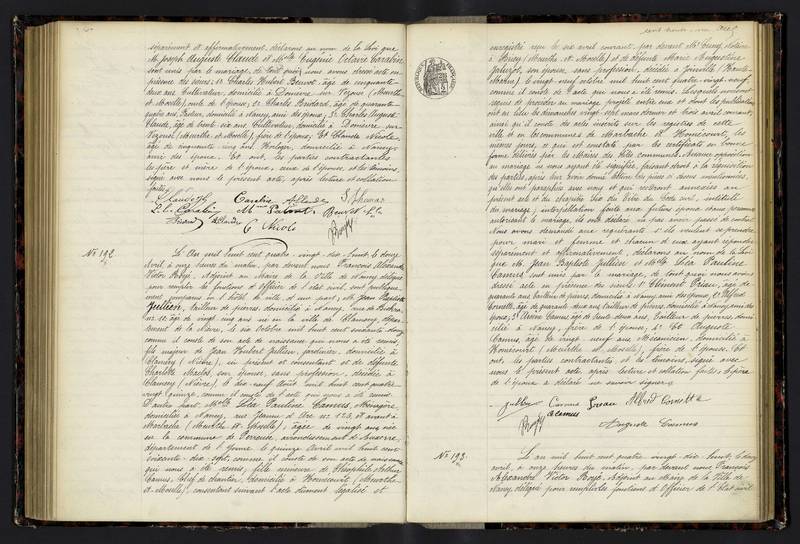 séparément et affirmativement, déclarons au nom de la Loi que
M. Joseph Auguste Claude et Melle Eugénie Octavie Carabin
sont unis par le mariage, de tout quoi nous avons dressé acte en
présence des sieurs: 1er Charles Hubert Beuvot, âgé de cinquante-
deux ans, Cultivateur, domicilié à Domèvre sur Vezouze (Meurthe
et Moselle), oncle de l'épouse; 2e Charles Bridard, âgé de quarante
quatre ans, domicilié à Nancy, ami des époux; 3e Charles Auguste
Claude, âgé de trente six ans, Cultivateur, domicilié à Domèvre sur
Vezouze (Meurthe et Moselle), frère de l'époux; Et Claude Nicole,
âgé de cinquante cinq ans, Horloger, domicilié à Nancy,
ami des époux. Et ont, les parties contractantes
les père et mère de l'époux, ceux de l'épouse, et les témoins,
signé avec nous le présent acte, après lecture et collation
faites.
Claude
Carabin A. Claude S. Thomas
L. C. Carabin
Beuvot
A Claude C Nicole
Boyé
No 192.
L'An mil huit cent quatre-vingt-dix-huit, le douze
Avril, à onze heures du matin, par devant nous François Alexandre
Victor Boyé, Adjoint au Maire de la Ville de Nancy, délégué
pour remplir les fonctions d'Officier de l'état civil, sont publique-
ment comparus en l'hôtel de ville, d'une part, M. Jean Baptiste
Jullien, tailleur de pierres, domicilié à Nancy, rue
no 12, âgé de vingt cinq ans, né en la ville de Clamecy, dépar-
tement de la Nièvre, le six Octobre mil huit cent soixante douze
comme il conste de son acte de naissance qui nous a été remis,
fils majeur de Jean Jullien, jardinier, domicilié à
Clamecy (Nièvre), ici présent et consentant et de défunte
Charlotte son épouse, sans profession, décédée à
Clamecy (Nièvre), le dix-neuf Août mil huit cent quatre
vingt quinze, comme il conste de l'acte qui nous a été remis
D'autre part Melle Léa Pauline Camus, Ménagère,
domiciliée à Nancy, rue Jeanne d'Arc no 123, et avant à
Marbache (Meurthe et Moselle), âgée de vingt ans, née
en la commune de Perreuse, arrondissement d'Auxerre,
département de l'Yonne, le quinze Avril mil huit cent
soixante-dix-sept, comme il conste de son acte de naissance
qui nous a été remis, fille mineure de Théophile Arthur
Camus, Chef de chantier, domicilié à Homécourt (Meurthe
et Moselle), consentant suivant l'acte dûment légalisé et
enregistré reçu le six avril courant, par devant Me Cuny, Notaire
à Briey (Meurthe et Moselle) et de défunte Marie Augustine
son épouse, sans profession, décédée à Joinville (Haute-
Marne), le vingt-neuf octobre mil huit cent quatre vingt-neuf,
comme il conste de l'acte qui nous a été remis. Lesquels nous ont
requis de procéder au mariage projeté entre eux et dont les publications
ont eu lieu les dimanches vingt sept mars dernier et trois avril courant,
ainsi qu'il conste des actes inscrits sur les registres de cette
ville et en les communes de Marbache et Homécourt, les
mêmes jours, ce qui est constaté par les certificats en bonne
forme délivrés par les Maires des dites communes. Aucune opposition
au mariage ne nous ayant été signifiée, faisant droit à la réquisition
des parties, après leur avoir donné lecture des pièces ci dessus mentionnées,
qu'elles ont paraphées avec nous et qui resteront annexées au
présent acte et du chapitre Six du titre du Code civil, intitulé
du mariage, interpellation faite aux futurs époux
autorisant le mariage, ils ont déclaré n'a pas avoir passé de contrat.
Nous avons demandé aux requérants s'ils veulent se prendre
pour mari et femme et chacun d'eux ayant répondu
séparément et affirmativement, déclarons au nom de la Loi
que M. Jean Baptiste Jullien et Melle Léa Pauline
Camus sont unis par le mariage, de tout quoi nous avons
dressé acte en présence des sieurs 1er Clément Préau, âgé de
quarante ans, tailleur de pierres, domicilié à Nancy, ami des époux; 2e Alfred
Cornette, âgé de quarante deux ans, tailleur de pierres, domicilié à Nancy, ami des
époux; 3e Arsène Camus, âgé de trente deux ans, tailleur de pierres, domi-
cilié à Nancy, frère de l'épouse; 4e Et Auguste
Camus, âgé de vingt-neuf ans, Mécanicien, domicilié à
Homécourt (Meurthe et Moselle), frère de l'épouse. Et
ont, les parties contractantes et les témoins, signé avec
nous le présent acte, après lecture et collation faites, le père
de l'époux a déclaré ne savoir signer.
Jullien Camus Préau Alfred Cornette
A Camus
Boyé Auguste Camus
No 193.
L'an mil huit cent quatre-vingt-dix-huit, le douze
avril, à onze heures du matin, par devant nous François
Alexandre Victor Boyé, Adjoint au Maire de la Ville de
Nancy, délégué pour remplir les fonctions d'Officier de l'Etat civil